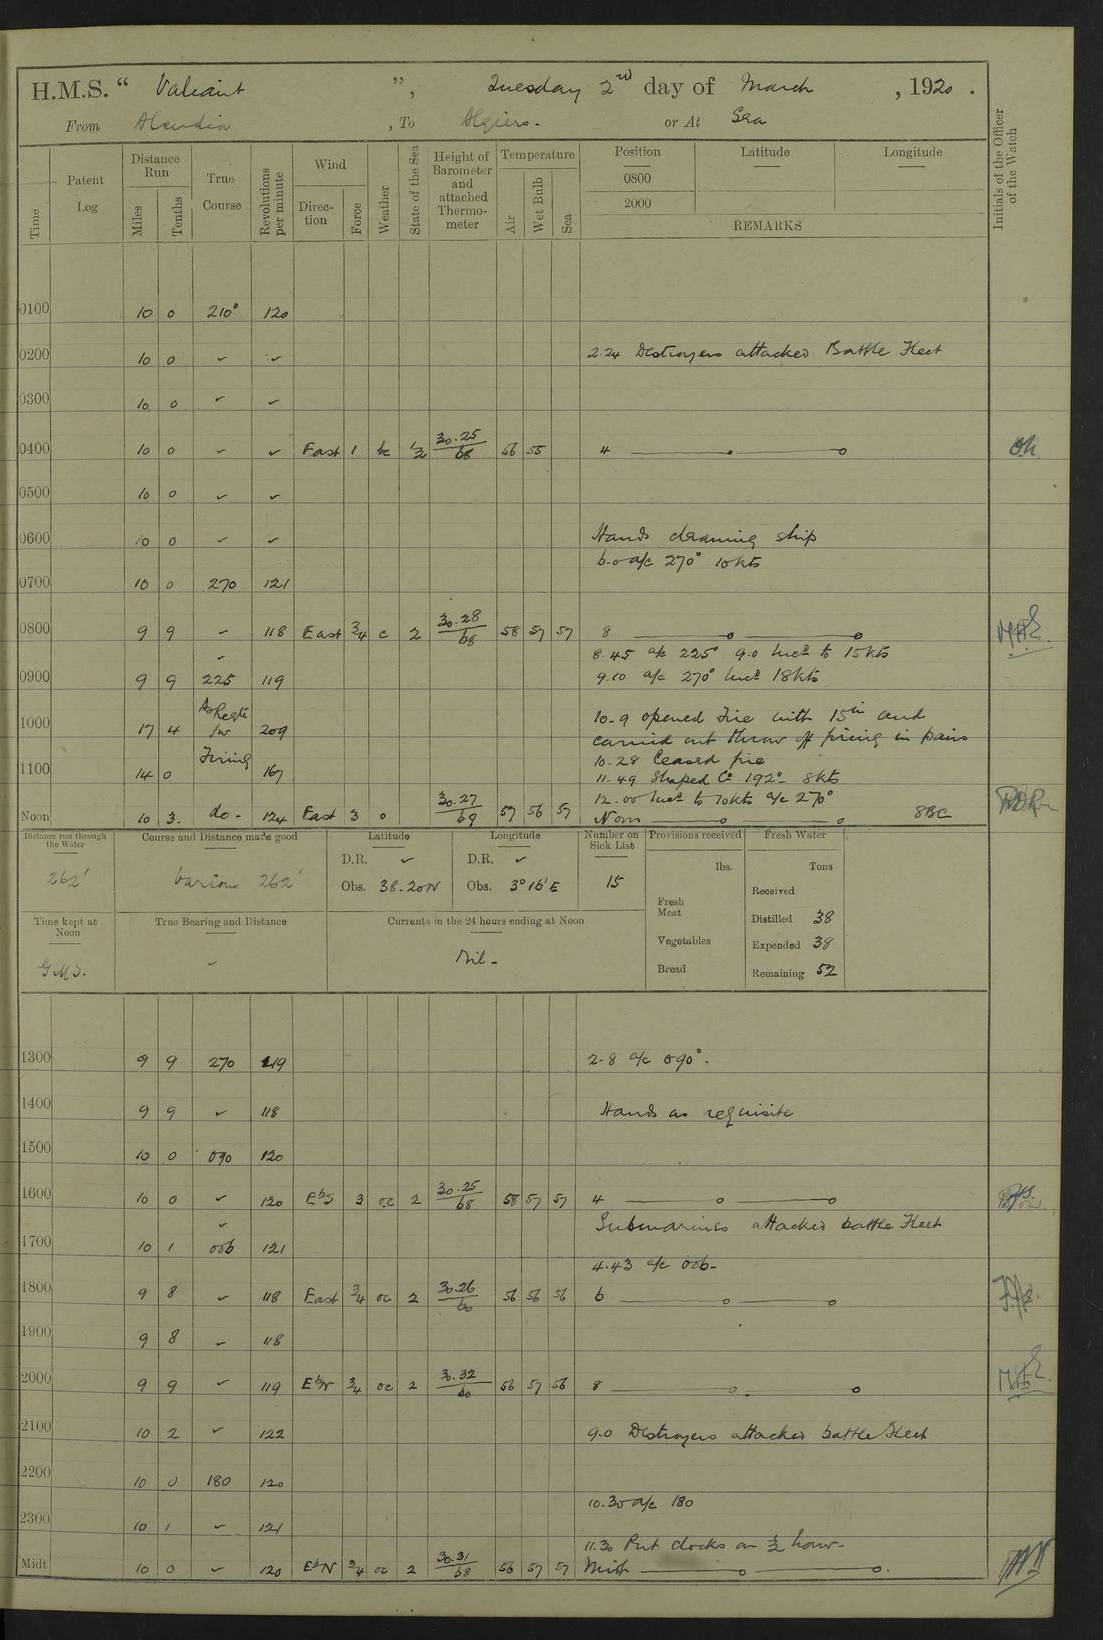 H.M.S. “ Valiant ”, Tuesday 2nd day of March , 1920 .
From Alcudia , To Algiers. or At Sea
Time
Patent Log
Distance Run
Miles Tenths
True Course
Revolutions per minute
Wind
Direction Force
Weather
State of the Sea
Height of Barometer and attached Thermometer
Temperature
Air Wet Bulb Sea
Position Latitude Longitude
0800
2000
REMARKS
Initials of the Officer of the Watch
0100 10 0 210° 120
0200 10 0 ✓ ✓ 2.24 Destroyers attacked Battle Fleet
0300 10 0 ✓ ✓
0400 10 0 ✓ ✓ East 1 bc ½ 30.25/68 56 55 4
0500 10 0 ✓ ✓
0600 10 0 ✓ ✓ Hands cleaning ship
6.0 a/c 270° 10 kts
0700 10 0 270 121
0800 9 9 ✓ 118 East 3/4 c 2 30.28/68 58 57 57 8
✓ 8.45 a/c 225° 9.0 Incd to 15 kts
0900 9 9 225 119 9.10 a/c 270° Incd 18 kts
1000 17 4 As Reqte for 209 10.9 opened Fire with 15in and
carried out throw off firing in pairs
1100 14 0 Firing 167 10.28 Ceased fire
11.49 Shaped Co 192° 8 kts
12.00 Incd to 10 kts a/c 270°
Noon 10 3. do. 124 East 3 o 30.27/69 57 56 57 Noon 8BC
Distance run through the Water
262'
Course and Distance made good
Various 262'
Latitude
D.R. ✓
Obs. 38.20N
Longitude
D.R. ✓
Obs. 3° 16' E
Number on Sick List
15
Provisions received
lbs.
Fresh Meat
Vegetables
Bread
Fresh Water
Tons
Received
Distilled 38
Expended 38
Remaining 52
Time kept at Noon
G.M.T.
True Bearing and Distance
✓
Currents in the 24 hours ending at Noon
Nil -
1300 9 9 270 119 2-8 a/c 090°.
1400 9 9 ✓ 118 Hands as requisite
1500 10 0 090 120
1600 10 0 ✓ 120 EbS 3 oc 2 30.25/68 58 57 57 4
✓ Submarines attacked battle Fleet
1700 10 1 006 121
4.43 a/c 006-
1800 9 8 ✓ 118 East 3/4 oc 2 30.26/60 56 56 56 6
1900 9 8 ✓ 118
2000 9 9 ✓ 119 EbN 3/4 oc 2 30.32/60 56 57 56 8
2100 10 2 ✓ 122 9.0 Destroyers attacked battle Fleet
2200 10 0 180 120
10.30 a/c 180
2300 10 1 ✓ 121
11.30 Put clocks on ½ hour-
Midt 10 0 ✓ 120 EbN 3/4 oc 2 30.31/68 56 57 57 Midt